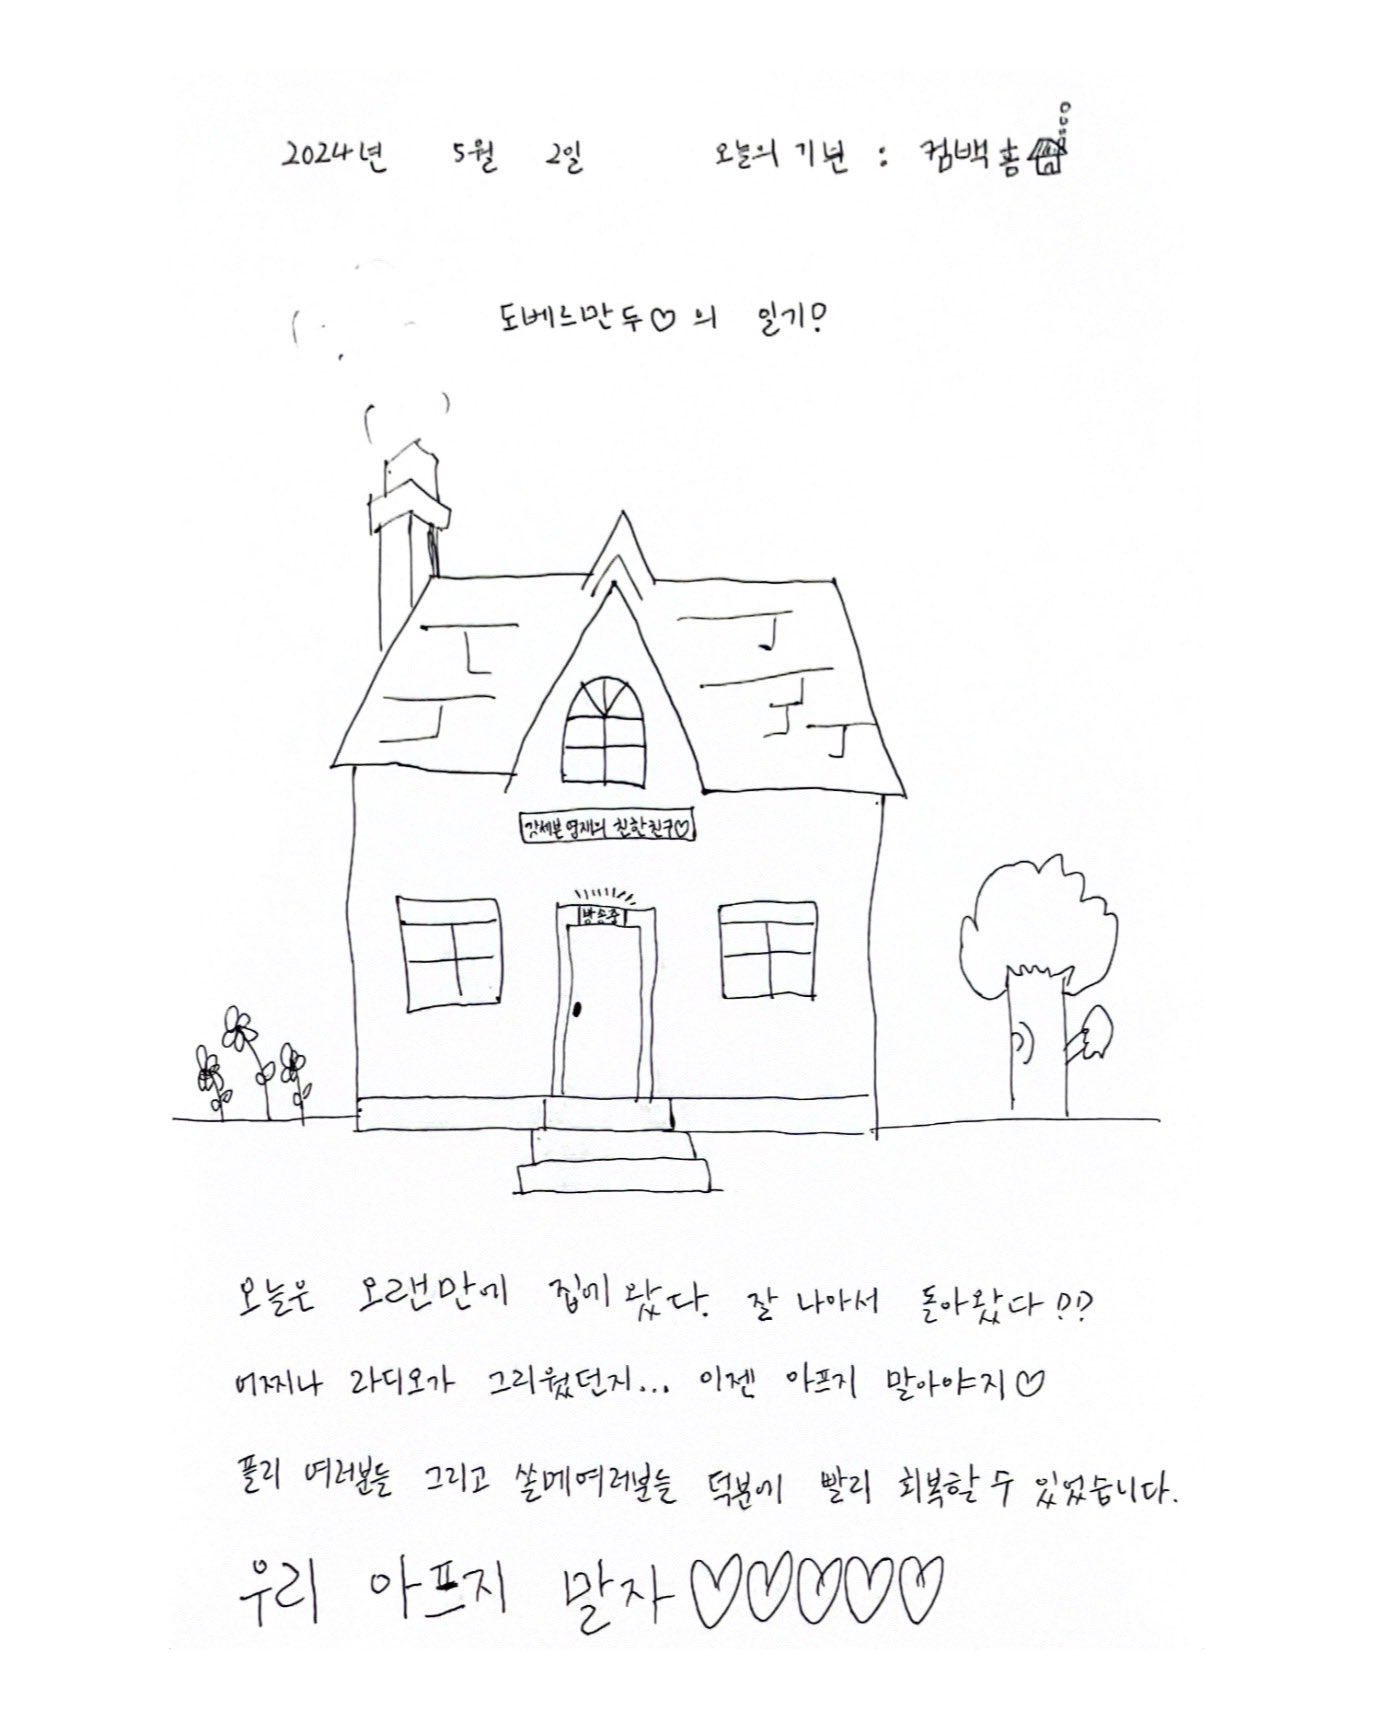 2024년 5월 2일 오늘의 기분 : 컴백홈
도베르만두♡의 일기?
갓세븐 영재의 친한친구♡
방송중
오늘은 오랜만에 집에 왔다. 잘 나아서 돌아왔다??
어찌나 라디오가 그리웠던지... 이젠 아프지 말아야지♡
플리 여러분들 그리고 쏠메여러분들 덕분에 빨리 회복할 수 있었습니다.
우리 아프지 말자♡♡♡♡♡